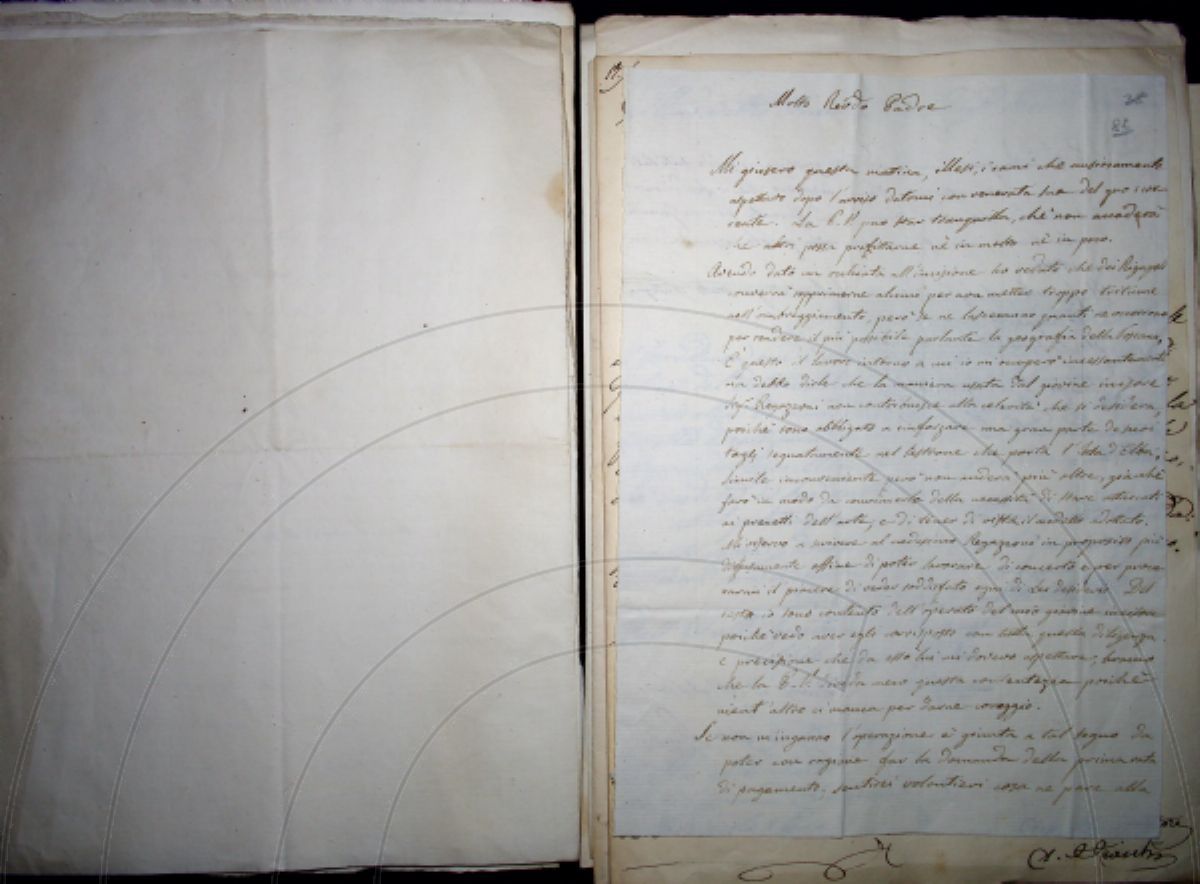 Molto Revdo Padre
38
85
Mi giunsero questa matina, illesi, i rami che ansiosamente
aspettavo dopo l'avviso datomi con venerata sua del 9no cor-
rente. La P. V. può star tranquilla, che non accaderà
che altri possa profittarne nè in molto nè in poco.
Avendo dato un ochiata all'incisione ho veduto che dei Rigagnoli
converrà sopprimerne alcuni per non metter troppo tortume
nell'ombreggiamento, però se ne lasceranno quanti ne occorrono
per rendere il più possibile parlante la geografia della Toscana.
È questo il lavoro intorno a cui io mi occuperò incessantemente
ma debbo dirle che la maniera usata dal giovine incisore
Sigr Regazzoni non contribuisce alla celerità che si desidera,
poichè sono obbligato a rinforzare una gran parte de suoi
tagli segnatamente nel Lastrone che porta l'Isola d'Elba,
simile inconveniente però non andrà più oltre, già chè
farò in modo da convincerlo della necessità di stare attaccati
ai precetti dell'arte, e di tener di vista il modello adottato.
Mi riservo a scrivere al medesimo Regazzoni in proposito più
diffusamente affine di poter lavorare di concerto e per procu-
rarmi il piacere di veder soddisfato ogni di Lei desiderio. Del
resto io sono contento dell'operato del mio giovine incisore
poichè vedo aver egli corrisposto con tutta quella diligenza
e precisione che da esso lui mi dovevo aspettare; bramo
che la P. V. divida meco questa contentezza poichè
nient'altro ci manca per darne coraggio.
Se non m'inganno l'operazione è giunta a tal segno da
poter con ragione far la domanda della prima rata
di pagamento; sentirei volontieri cosa ne pare alla